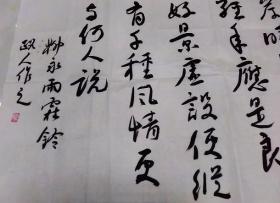 經年應是良
好景虛設便縱
有千種風情更
與何人說
柳永雨霖鈴